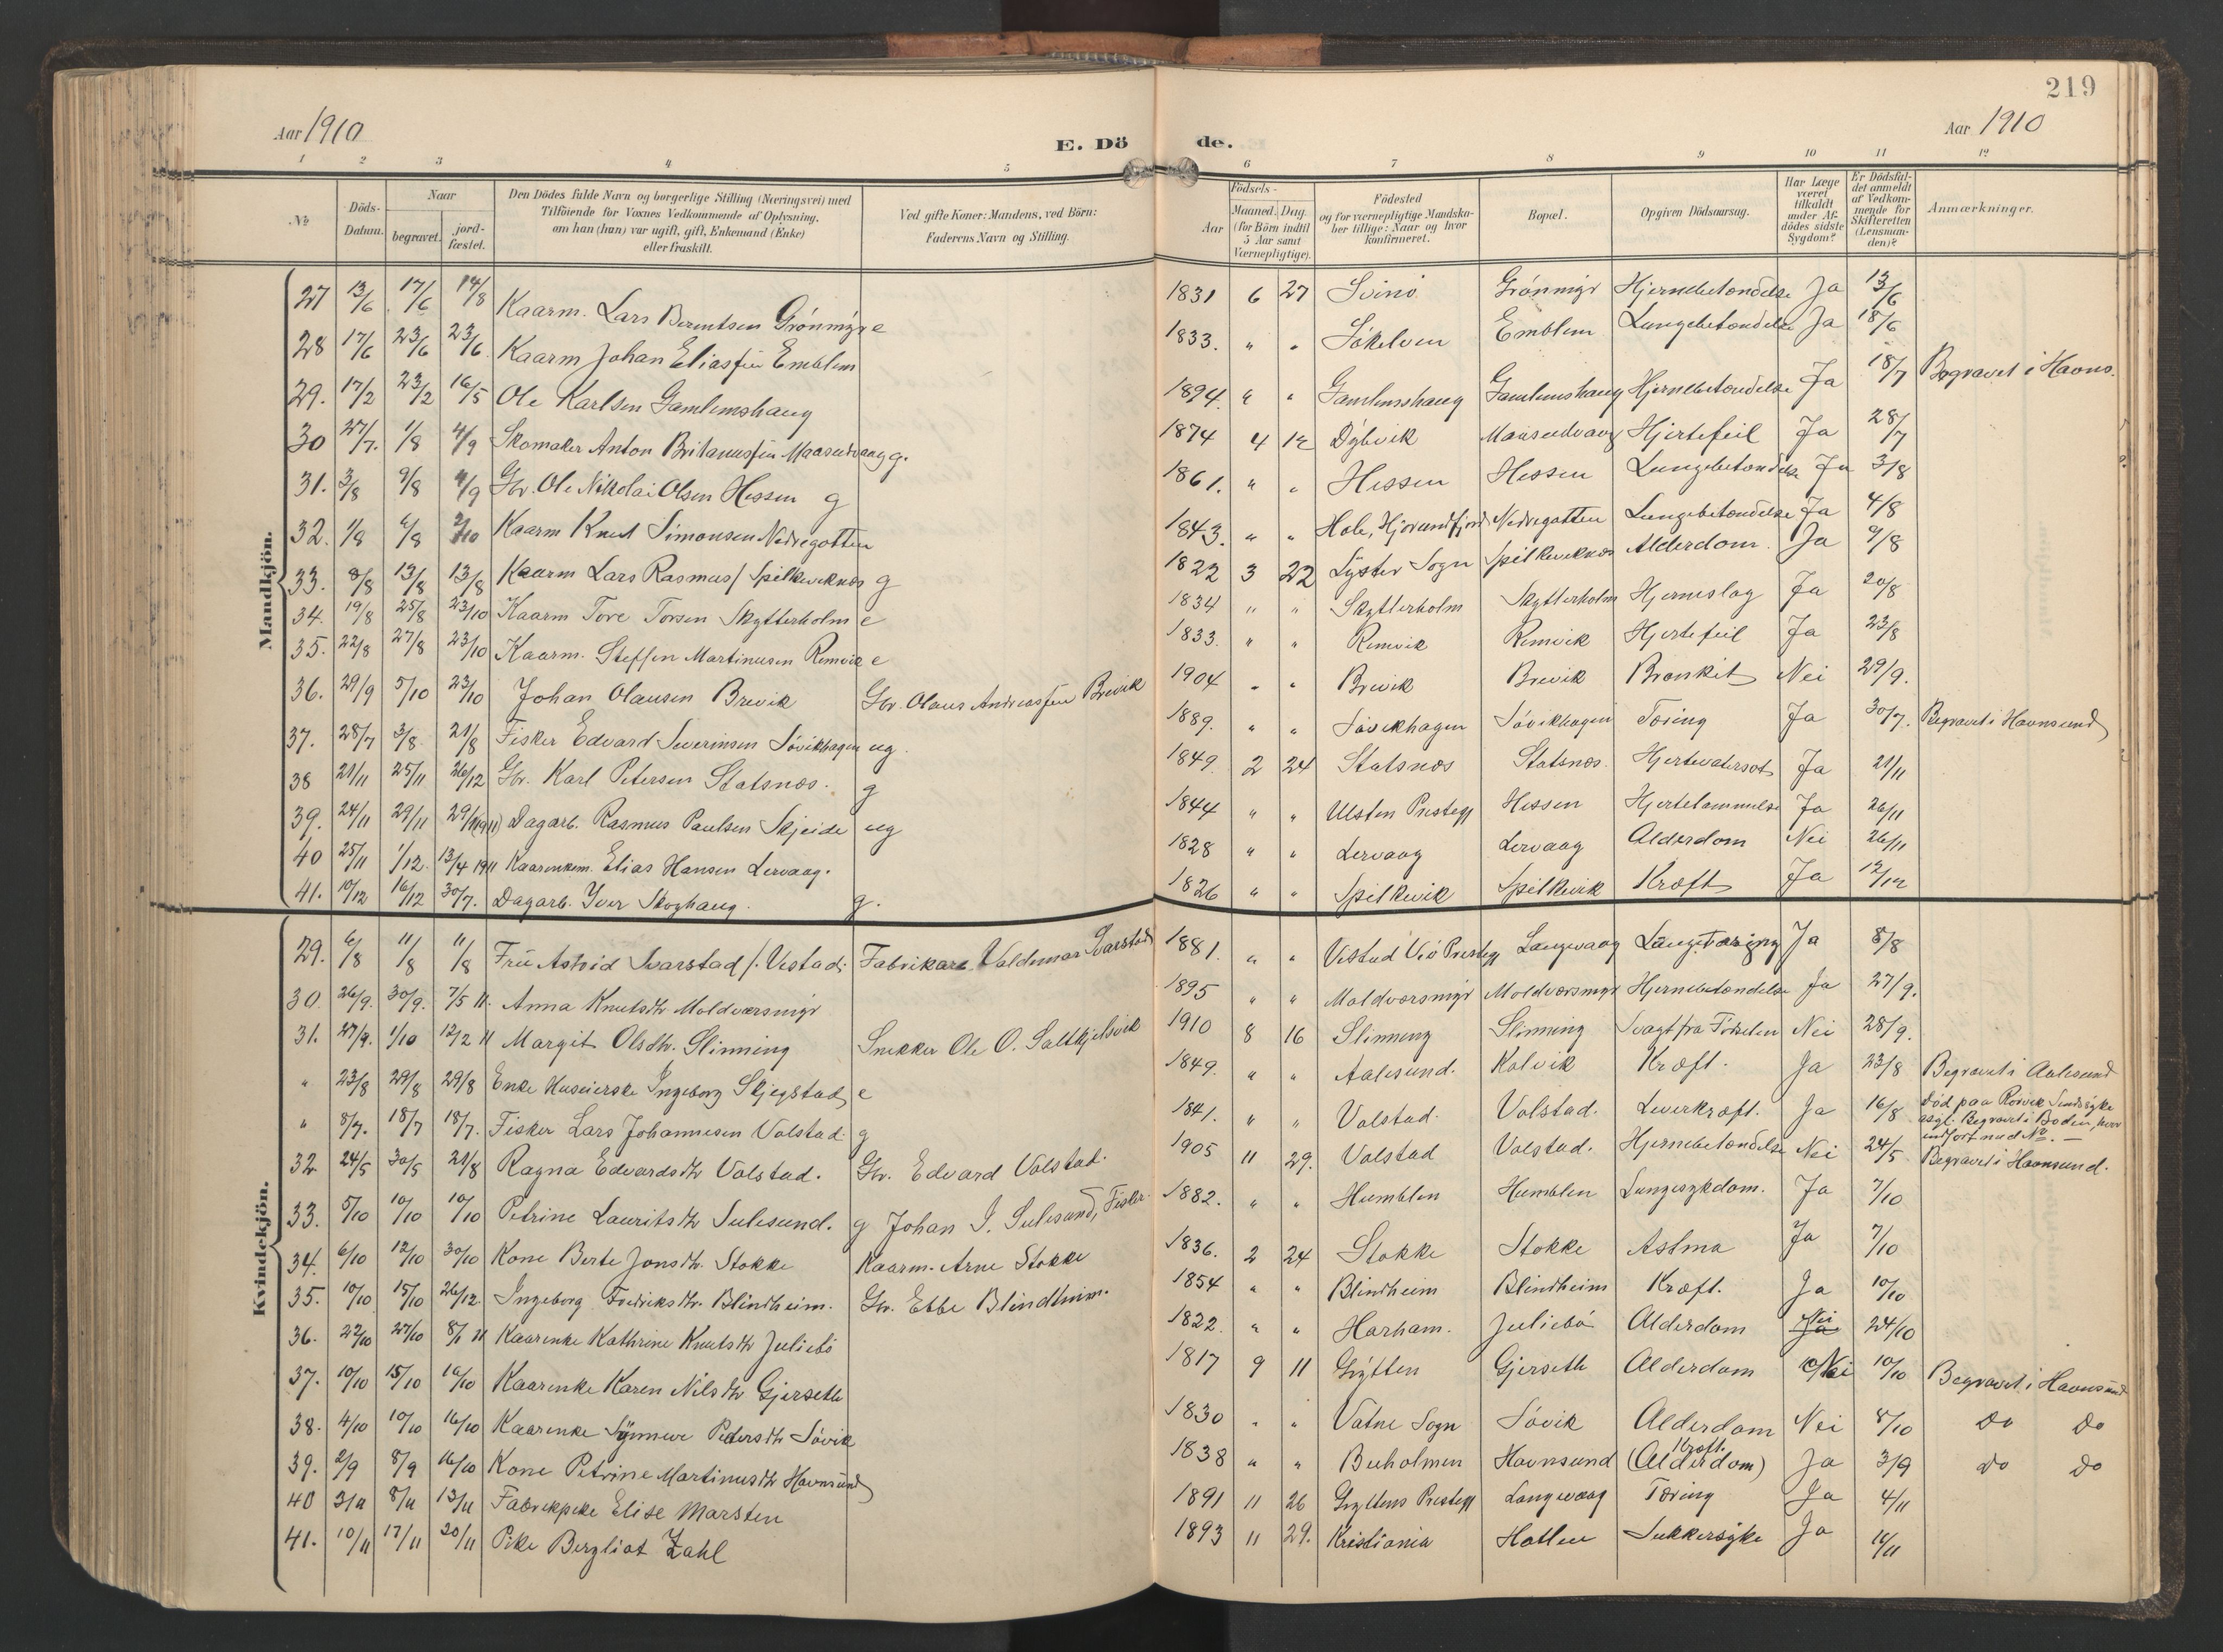 219
Aar 1910
E. Dö
de.
Aar 1910
1 2 3 4 5 6 7 8 9 10 11 12
No
Döds-Datum.
Naar
begravet. jord-fæstet.
Den Dödes fulde Navn og borgerlige Stilling (Næringsvei) med
Tilföiende for Voxnes Vedkommende af Oplysning,
om han (hun) var ugift, gift, Enkemand (Enke)
eller fraskilt.
Ved gifte Koner: Mandens, ved Börn:
Faderens Navn og Stilling.
Födsels-
Aar
Maaned. Dag.
(for Börn indtil
5 Aar samt
Værnepligtige).
Födested
og for værnepligtige Mandska-
ber tillige: Naar og hvor
konfirmeret.
Bopæl.
Opgiven Dödsaarsag.
Har Læge
været
tilkaldt
under Af-
dödes sidste
Sygdom?
Er Dödsfal-
det anmeldt
af Vedkom-
mende for
Skifteretten
(Lensman-
den)?
Anmærkninger.
Mandkjön.
27 13/6 17/6 14/8 Kaarm. Lars Berntsen Grönmyr e 1831 6 27 Svinö Grönmyr Hjernebetændelse Ja 13/6
28 17/6 23/6 23/6 Kaarm Johan Eliassen Emblem 1833. " " Sökelven Emblem Lungebetændelse Ja 18/6
29. 17/2 23/2 16/5 Ole Karlsen Gamlemshaug 1894. " " Gamlemshaug Gamlemshaug Hjernebetændelse Ja 18/7 Begravet i Havns.
30 27/7. 1/8 4/9 Skomaker Anton Britanussen Maaseidvaag g. 1874 4 12 Dybvik Maaseidvaag Hjertefeil Ja 28/7
31. 3/8 9/8 4/9 Gbr. Ole Nikolai Olsen Hessen g 1861. " " Hessen Hessen Lungebetændelse Ja 3/8
32. 1/8 6/8 2/10 Kaarm Knut Simonsen Nedregotten 1843. " " Hole, Hjörundfjord Nedregotten Lungebetændelse Ja 4/8
33. 8/8 13/8 13/8 Kaarm Lars Rasmus/ Spilkeviknes g 1822 3 22 Lyster Sogn Spilkeviknes Alderdom. Ja 9/8
34. 19/8 25/8 23/10 Kaarm Tore Torsen Skytterholm e 1834 " " Skytterholm Skytterholm Hjerneslag Ja 20/8
35. 22/8 27/8 23/10 Kaarm. Steffen Martinusen Remvik e 1833. " " Remvik Remvik Hjertefeil Ja 23/8
36. 29/9 5/10 23/10 Johan Olausen Brevik Gbr. Olaus Andreassen Brevik 1904 " " Brevik Brevik Bronkit Nei 29/9.
37. 28/7 3/8 21/8 Fisker Edvard Severinsen Sövikhagen ug. 1889. " " Sövikhagen Sövikhagen Tæring Ja 30/7. Begravet i Havnsund
38 21/11 25/11 26/12 Gbr. Karl Petersen Slatsnes. g 1849. 2 24 Slatsnes Slatsnes. Hjertevatersot Ja 21/11
39. 24/11 29/11 Dagarb. Rasmus Paulsen Skjeide ug 1844 " " Ulsten Prestegj Hessen Hjertelammelse Ja 26/11
40 25/11 1/12. 13/4 1911 Kaarenkem. Elias Hansen Lervaag. 1828 " " Lervaag Lervaag Alderdom Nei 26/11
41. 10/12 16/12 30/7. Dagarb. Iver Skoghaug. g. 1826 " " Spilkevik Spilkevik Kræft Ja 12/12
Kvindekjön.
29. 6/8 11/8 11/8 Frü Astrid Svarstad f. Vestad. Fabrikarb. Valdemar Svarstad 1881. " " Vestad Vestnes Prestegj Langevaag Lungetæring Ja 8/8
30. 26/9. 30/9. 7/5 11. Anna Knutsdtr Moldværsmyr 1895 " " Moldværsmyr Moldværsmyr Hjernebetændelse Ja 27/9.
31. 27/9. 1/10 12/2 11 Margit Olsdtr. Slinning Snekker Ole O. Saltkjelsvik 1910 8 16 Slinning Slinning Svagt fra Födselen Nei 28/9.
" 23/8 29/8 29/8 Enke Huseierske Ingeborg Skjegstad e 1849. " " Aalesund. Kolvik Kræft. Ja 23/8 Begravet i Aalesund
" 8/7. 18/7 18/7. Fisker Lars Johannesen Valstad. g 1841. " " Valstad. Valstad. Leverkræft. Ja 16/8 Död paa Rönvik Sindssyke
asyl. Begravet i Bodin, hvor
indfört med No. —
32 24/5 30/5 21/8 Ragna Edvardsdtr Valstad. Gbr. Edvard Valstad. 1905 11 29. Valstad Valstad. Hjernebetændelse Nei 24/5 Begravet i Havnsund.
33. 5/10 10/10 10/10 Petrine Lauritsdtr Sulesund. g Johan I. Sulesund, Fisker. 1882. " " Humblen Humblen Lungesykdom. Ja 7/10
34. 6/10 12/10 30/10 Kone Berte Jonsdtr. Stokke Kaarm. Arne Stokke 1836. 2 24 Stokke Stokke Astma Ja 7/10
35. 10/10 15/10 26/12. Ingeborg Fredriksdtr. Blindheim. Gbr. Ebbe Blindheim. 1854 " " Blindheim Blindheim Kræft. Ja 10/10
36. 22/10 27/10 8/1 11 Kaarenke Kathrine Knutsdtr Juliebö 1822. " " Harham. Juliebö Alderdom Ja Nei 24/10
37. 10/10 15/10 16/10 Kaarenke Karen Nilsdtr Gjerseth 1817 9 11 Grytten Gjerseth Alderdom Nei 10/10 Begravet i Havnsund
38. 4/10 10/10 16/10 Kaarenke Synneve Pedersdtr Sövik 1830 " " Vatne Sogn Sövik Alderdom Nei 8/10 Do Do
39. 2/9 8/9 16/10 Kone Petrine Martinusdtr Havnsund 1838 " " Buholmen Havnsund Kræft. (Alderdom) Ja 3/9 Do Do
40 3/11 8/11 13/11 Fabrikpike Elise Marsten 1891 11 26 Gryttens Prestegj Langevaag Tæring Ja 4/11
41. 10/11 17/11 20/11 Pike Bergliot Zahl 1893 11 29. Kristiania Hatlen Sukkersyke Ja 11/11